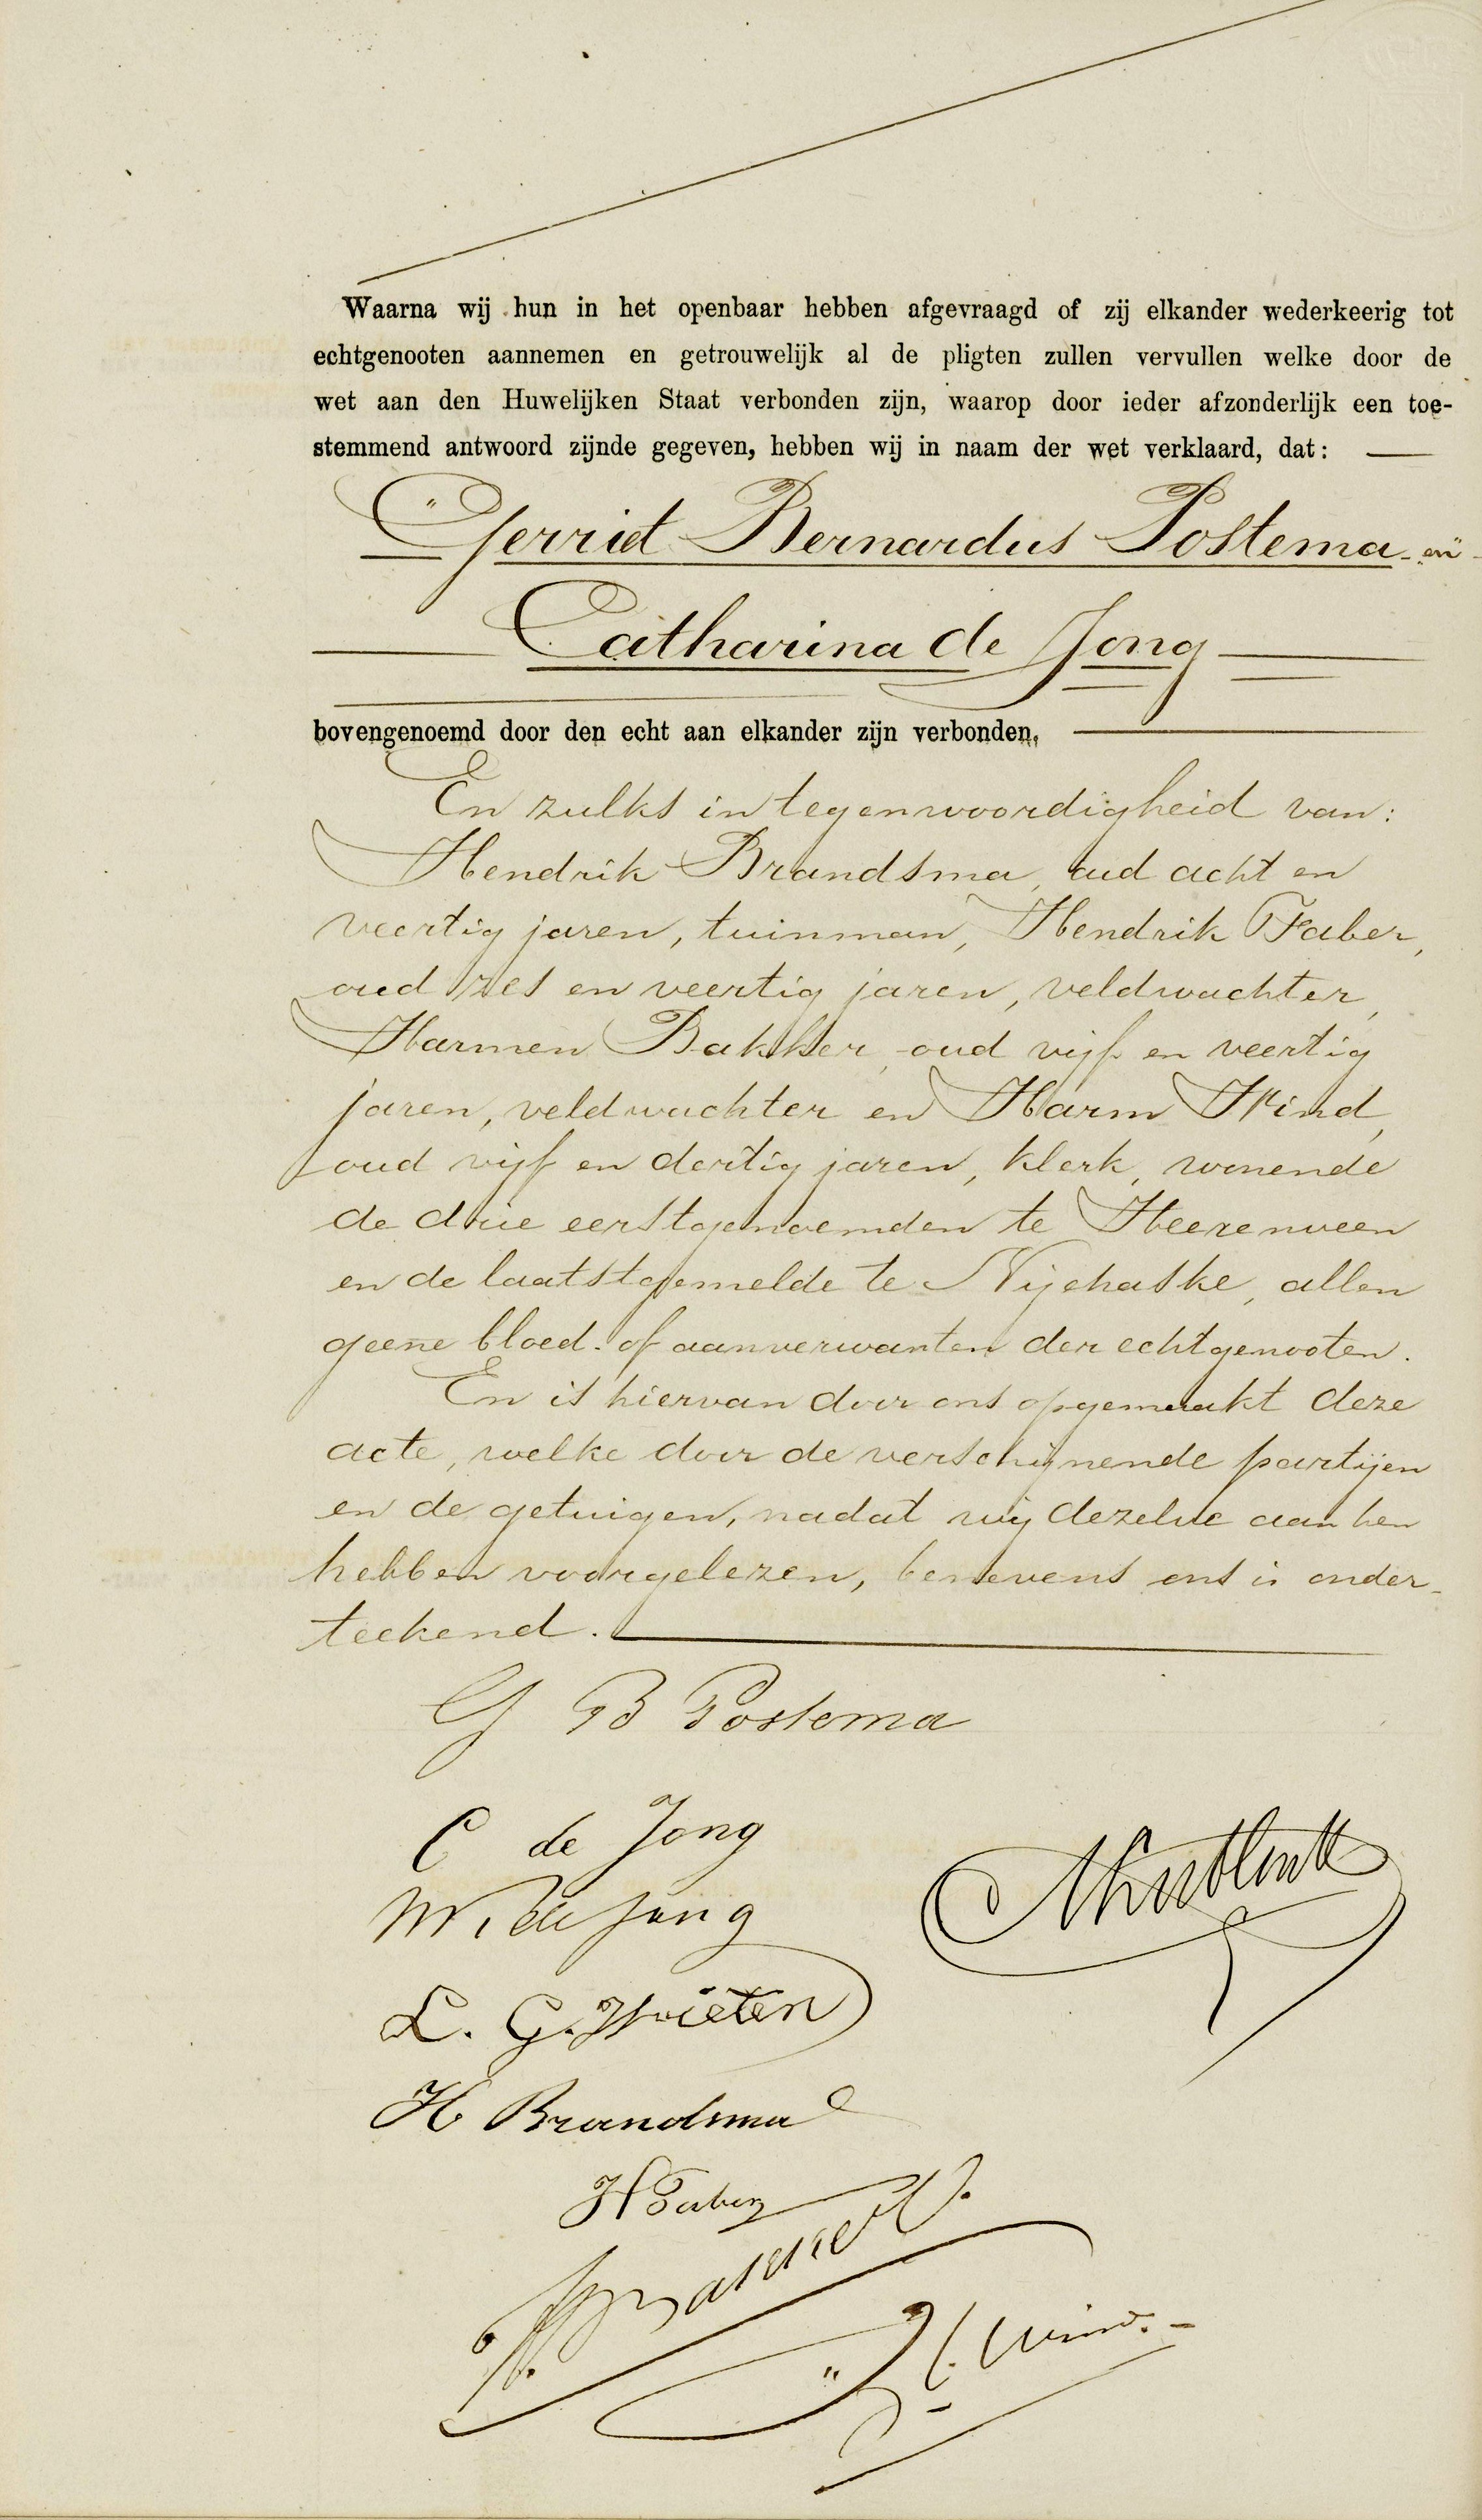 Waarna wij hun in het openbaar hebben afgevraagd of zij elkander wederkeerig tot
echtgenooten aannemen en getrouwelijk al de pligten zullen vervullen welke door de
wet aan den Huwelijken Staat verbonden zijn, waarop door ieder afzonderlijk een toe-
stemmend antwoord zijnde gegeven, hebben wij in naam der wet verklaard, dat:
Gerriet Bernardus Postema en
Catharina de Jong
bovengenoemd door den echt aan elkander zijn verbonden,
En zulks in tegenwoordigheid van:
Hendrik Brandsma, oud acht en
veertig jaren, tuinman, Hendrik Faber,
oud zes en veertig jaren, veldwachter,
Harmen Bakker, oud vijf en veertig
jaren, veldwachter en Harm Wind,
oud vijf en dertig jaren, klerk, wonende
de drie eerstgenoemden te Heerenveen
en de laatstgemelde te Nijehaske, allen
geene bloed- of aanverwanten der echtgenooten.
En is hiervan door ons opgemaakt deze
acte, welke door de verschijnende partijen
en de getuigen, nadat wij dezelve aan hen
hebben voorgelezen, benevens ons is onder-
teekend.
G B Postema
C de Jong
W. de Jong
L. G.
H Brandsma
H Faber
H. Bakker
H. Wind.